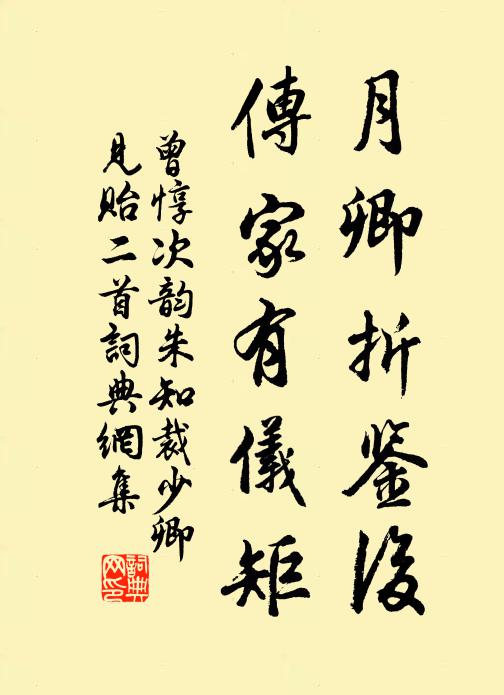 月卿折鉴後
傳家有儀矩
曾惇次韵朱知裁少卿
見貽二首詞典網集
詞典
网印